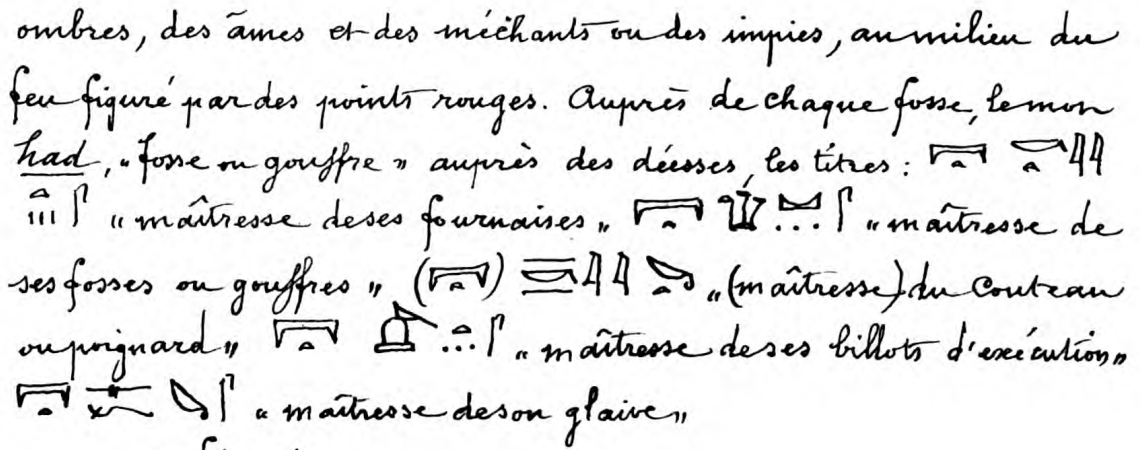 ombres, des âmes et des méchants ou des impies, au milieu du
feu figuré par des points rouges. Auprès de chaque fosse, le mon
had, "fosse ou gouffre" auprès des déesses, les titres :
"maîtresse de ses fournaises"  "maîtresse de
ses fosses ou gouffres" ( ) "(maîtresse) du couteau
ou poignard"  "maîtresse de ses billots d'exécution"
"maîtresse de son glaive"